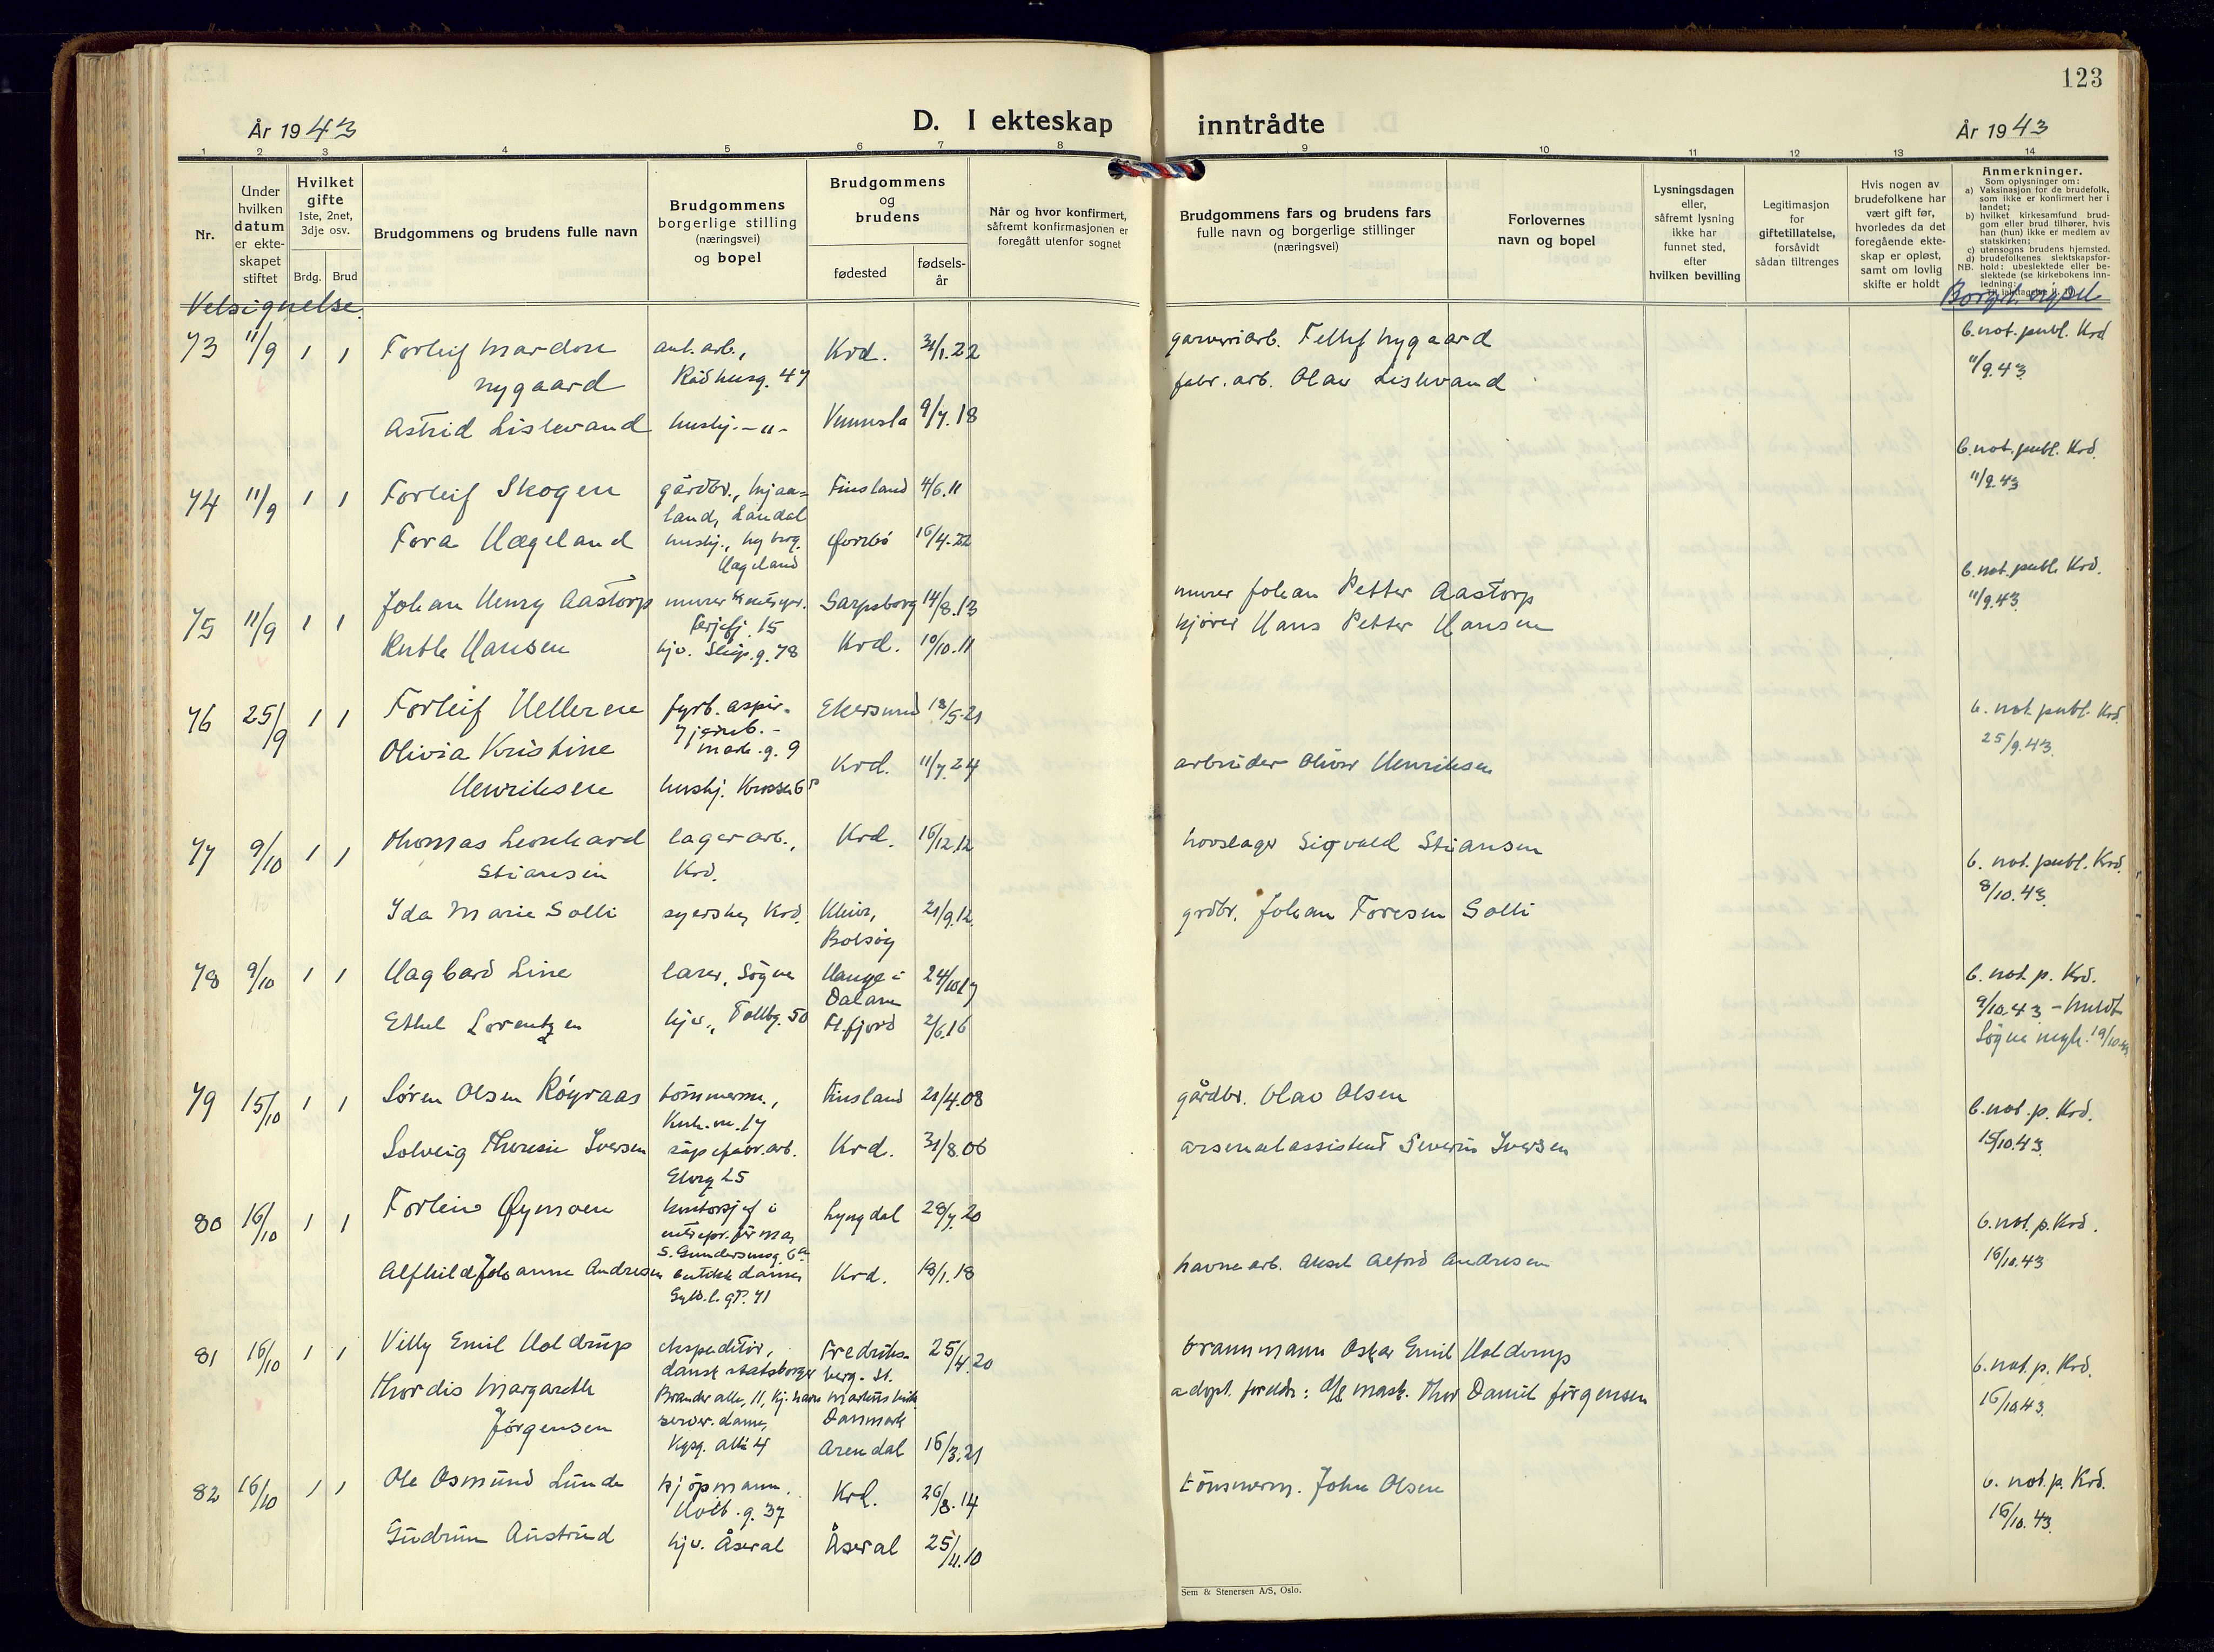 123
År 1943
D. I ekteskap inntrådte
År 1943
1 2 3 4 5 6 7 8 9 10 11 12 13 14
Nr.
Under hvilken datum er ekteskapet stiftet
Hvilket gifte
1ste, 2net, 3dje osv.
Brdg. Brud
Brudgommens og brudens fulle navn
Brudgommens borgerlige stilling (næringsvei) og bopel
Brudgommens og brudens
fødested
fødselsår
Når og hvor konfirmert, såfremt konfirmasjonen er foregått utenfor sognet
Brudgommens fars og brudens fars fulle navn og borgerlige stillinger (næringsvei)
Forlovernes navn og bopel
Lysningsdagen eller, såfremt lysning ikke har funnet sted, efter hvilken bevilling
Legitimasjon for giftetillatelse, forsåvidt sådan tiltrenges
Hvis nogen av brudefolkene har vært gift før, hvorledes da det foregående ekteskap er opløst, samt om lovlig skifte er holdt
Anmerkninger.
Som oplysninger om:
a) Vaksinasjon for de brudefolk, som ikke er konfirmert her i landet;
b) hvilket kirkesamfund brudgom eller brud tilhører, hvis han (hun) ikke er medlem av statskirken;
c) utensogns brudens hjemsted.
d) brudefolkenes slektskapsforhold: ubeslektede eller beslektede (se kirkebokens innledning:
NB.
Velsignelse.
Borgerl. vigsel
73 11/9 1 1 Torleif Mardon
Nygaard
Rådhusg. 47
Krd. 31/1.22
garveriarb. Tellef Nygaard
b. not. publ. Krd
11/9.43
Astrid Lislevand
hushj. -"-
Vennesla 9/7.18
fabr. arb. Olav Lislevand
74 11/9 1 1 Torleif Skogen
gårdbr., Mjaaland, Laudal
Finsland 4/6.11
b. not. publ. Krd.
11/9.43
Tora Hægeland
Hægeland
16/4.22
75 11/9 1 1 Johan Henry Aastorp
Sarpsborg 14/8.13
murer Johan Petter Aastorp
b. not. publ. Krd.
11/9.43
Ruth Hansen
hjv. Skip.g. 78
Krd. 10/10.11
kjører Hans Petter Hansen
76 25/9 1 1 Torleif Helleren
fyrb. aspir.
Mark.g. 9
Ekersund 18/5.21
b. not. publ. Krd.
25/9.43
Olivia Kristine
Henriksen
Krd. 11/7.24
arbeider Oliver Henriksen
77 9/10 1 1 Thomas Leonhard
Stiansen
lagerarb.,
Krd.
Krd. 16/12.12
hovslager Sigvald Stiansen
b. not. publ. Krd.
8/10.43
Ida Marie Solli
syerske, Krd.
Kleive,
Bolsøy
21/9.12
grdbr. Johan Toresen Solli
78 9/10 1 1 Hagbard Line
lærer, Søgne
Hauge i
Dalane
24/10.17
b. not. p. Krd.
9/10.43 - meldt
Søgne
Ethel Lorentzen
hjv., Tollbg. 50
Fl.fjord 2/6.16
79 15/10 1 1 Søren Olsen Røyraas
tømmerm.,
Finsland 21/4.08
gårdbr. Olav Olsen
b. not. p. Krd.
15/10.43
Solveig Therese Iversen
såpefabr.arb.
Elveg. 25
Krd. 31/8.06
arsenalassistent Severin Iversen
80 16/10 1 1 Torleiv Øymoen
kontorsjef i
entrepr. firma,
S. Gundersensg. 6a
Lyngdal 28/7.20
b. not. p. Krd.
16/10.43
Alfhild Johanne Andresen
butikkdame
Gyld.l. gt. 71
Krd. 18/1.18
havnearb. Aksel Alfred Andresen
81 16/10 1 1 Villy Emil Holdrup
ekspeditør,
dansk statsborger
Brander alle, 11, Kj.havn
Fredriksberg. St.
Danmark
25/4.20
brannmann Oskar Emil Holdrup
b. not. p. Krd.
16/10.43
Thordis Margareth
Jørgensen
server.dame,
Kgsg. alle 4
Arendal 16/3.21
adopt. foreldr: Mask. Thor Daniel Jørgensen
82 16/10 1 1 Ole Osmund Lunde
kjøpmann,
Holb.g. 37
Krd. 26/8.14
tømmerm. John Olsen
b. not. p. Krd.
16/10.43
Gudrun Austrud
hjv. Åseral
Åseral 25/11.10
Sem & Stenersen A/S, Oslo.